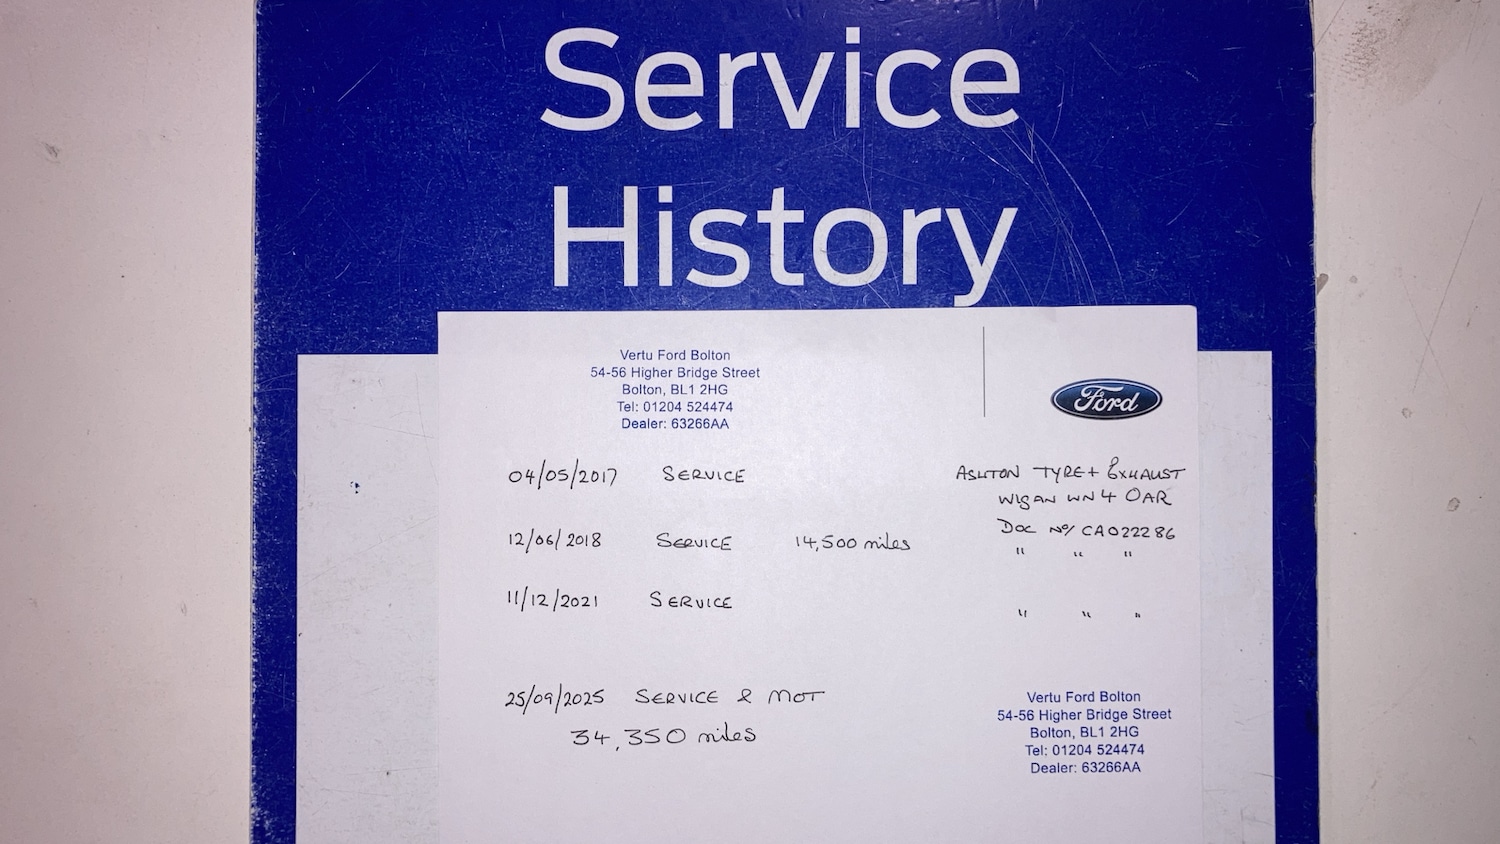 Service
History
Vertu Ford Bolton
54-56 Higher Bridge Street
Bolton, BL1 2HG
Tel: 01204 524474
Dealer: 63266AA
Ford
04/05/2017 SERVICE ASHTON TYRE + EXHAUST
WIGAN WN4 0AR
DOC Nº/ CA022286
12/06/2018 SERVICE 14,500 miles " " "
11/12/2021 SERVICE " " "
25/09/2025 SERVICE & MOT
34,350 miles
Vertu Ford Bolton
54-56 Higher Bridge Street
Bolton, BL1 2HG
Tel: 01204 524474
Dealer: 63266AA